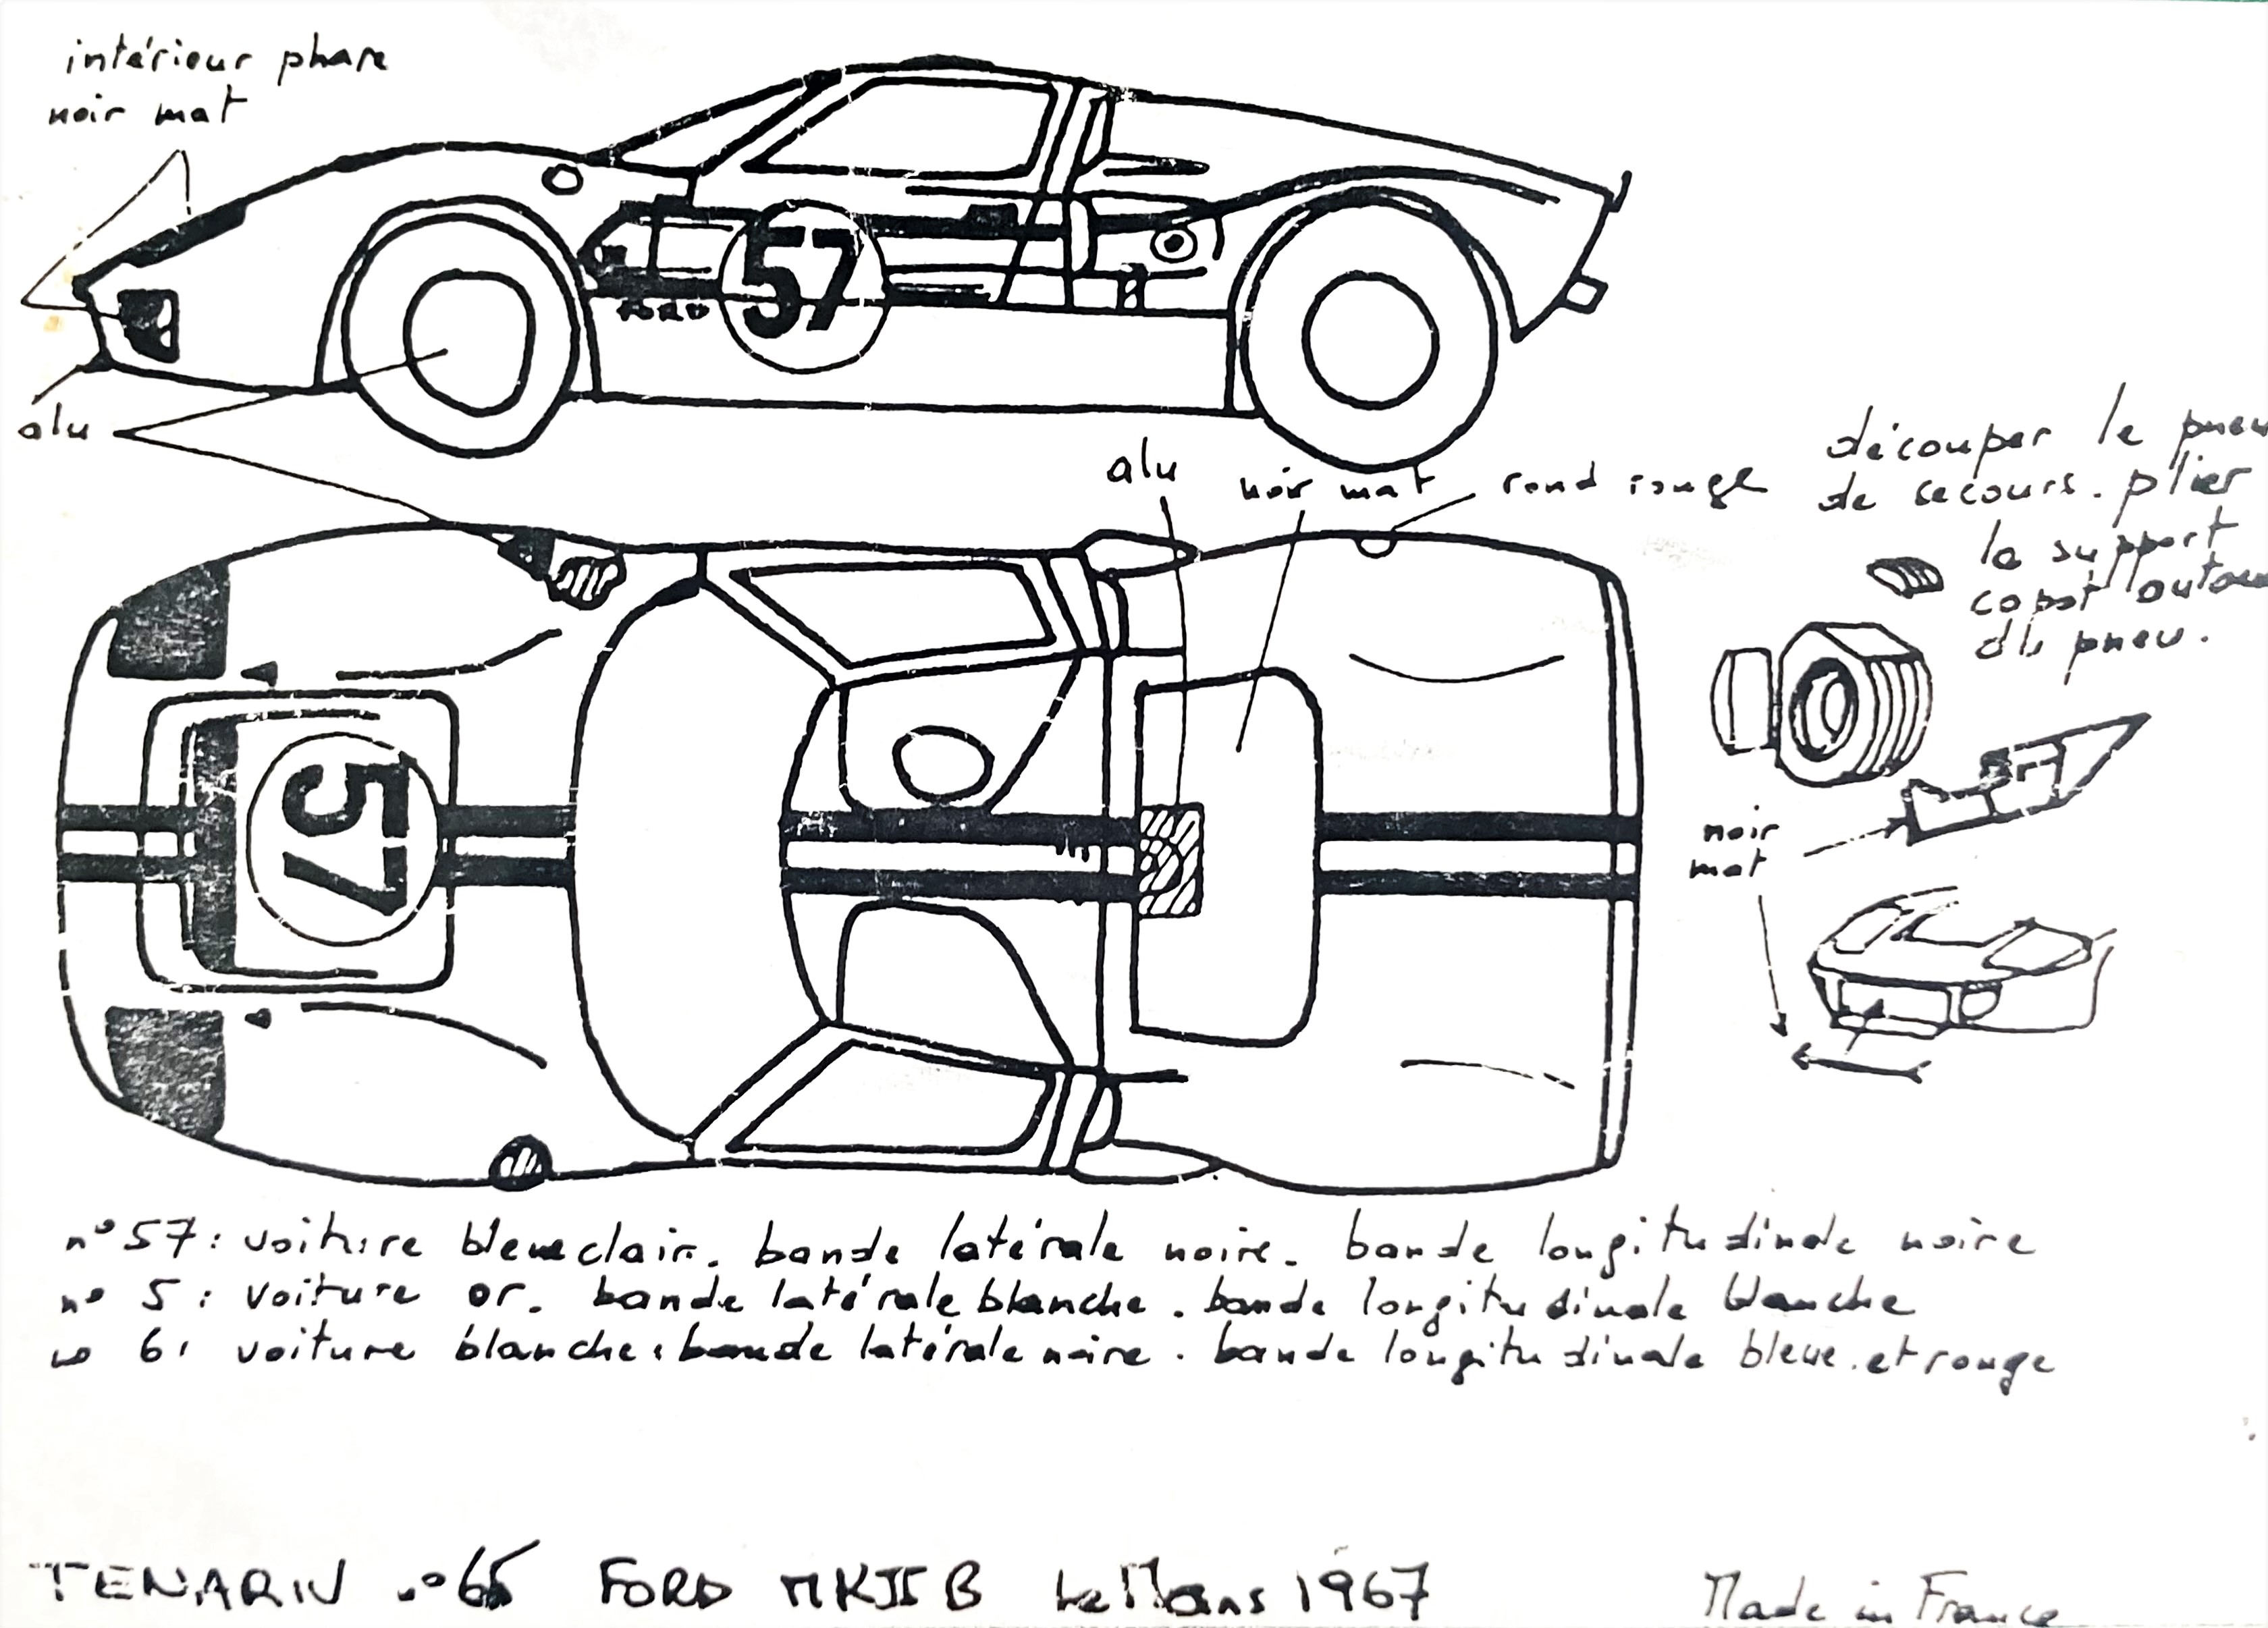 intérieur phare
noir mat
57
FORD
alu
alu
noir mat
rond rouge
découper le pneu
de secours. plier
le support
capot autour
du pneu.
57
noir
mat
n° 57 : voiture bleue clair. bande latérale noire. bande longitudinale noire
n° 5 : voiture or. bande latérale blanche. bande longitudinale blanche
n° 6 : voiture blanche. bande latérale noire. bande longitudinale bleue. et rouge
TENARIV n° FORD MKII B Le Mans 1967
Made in France